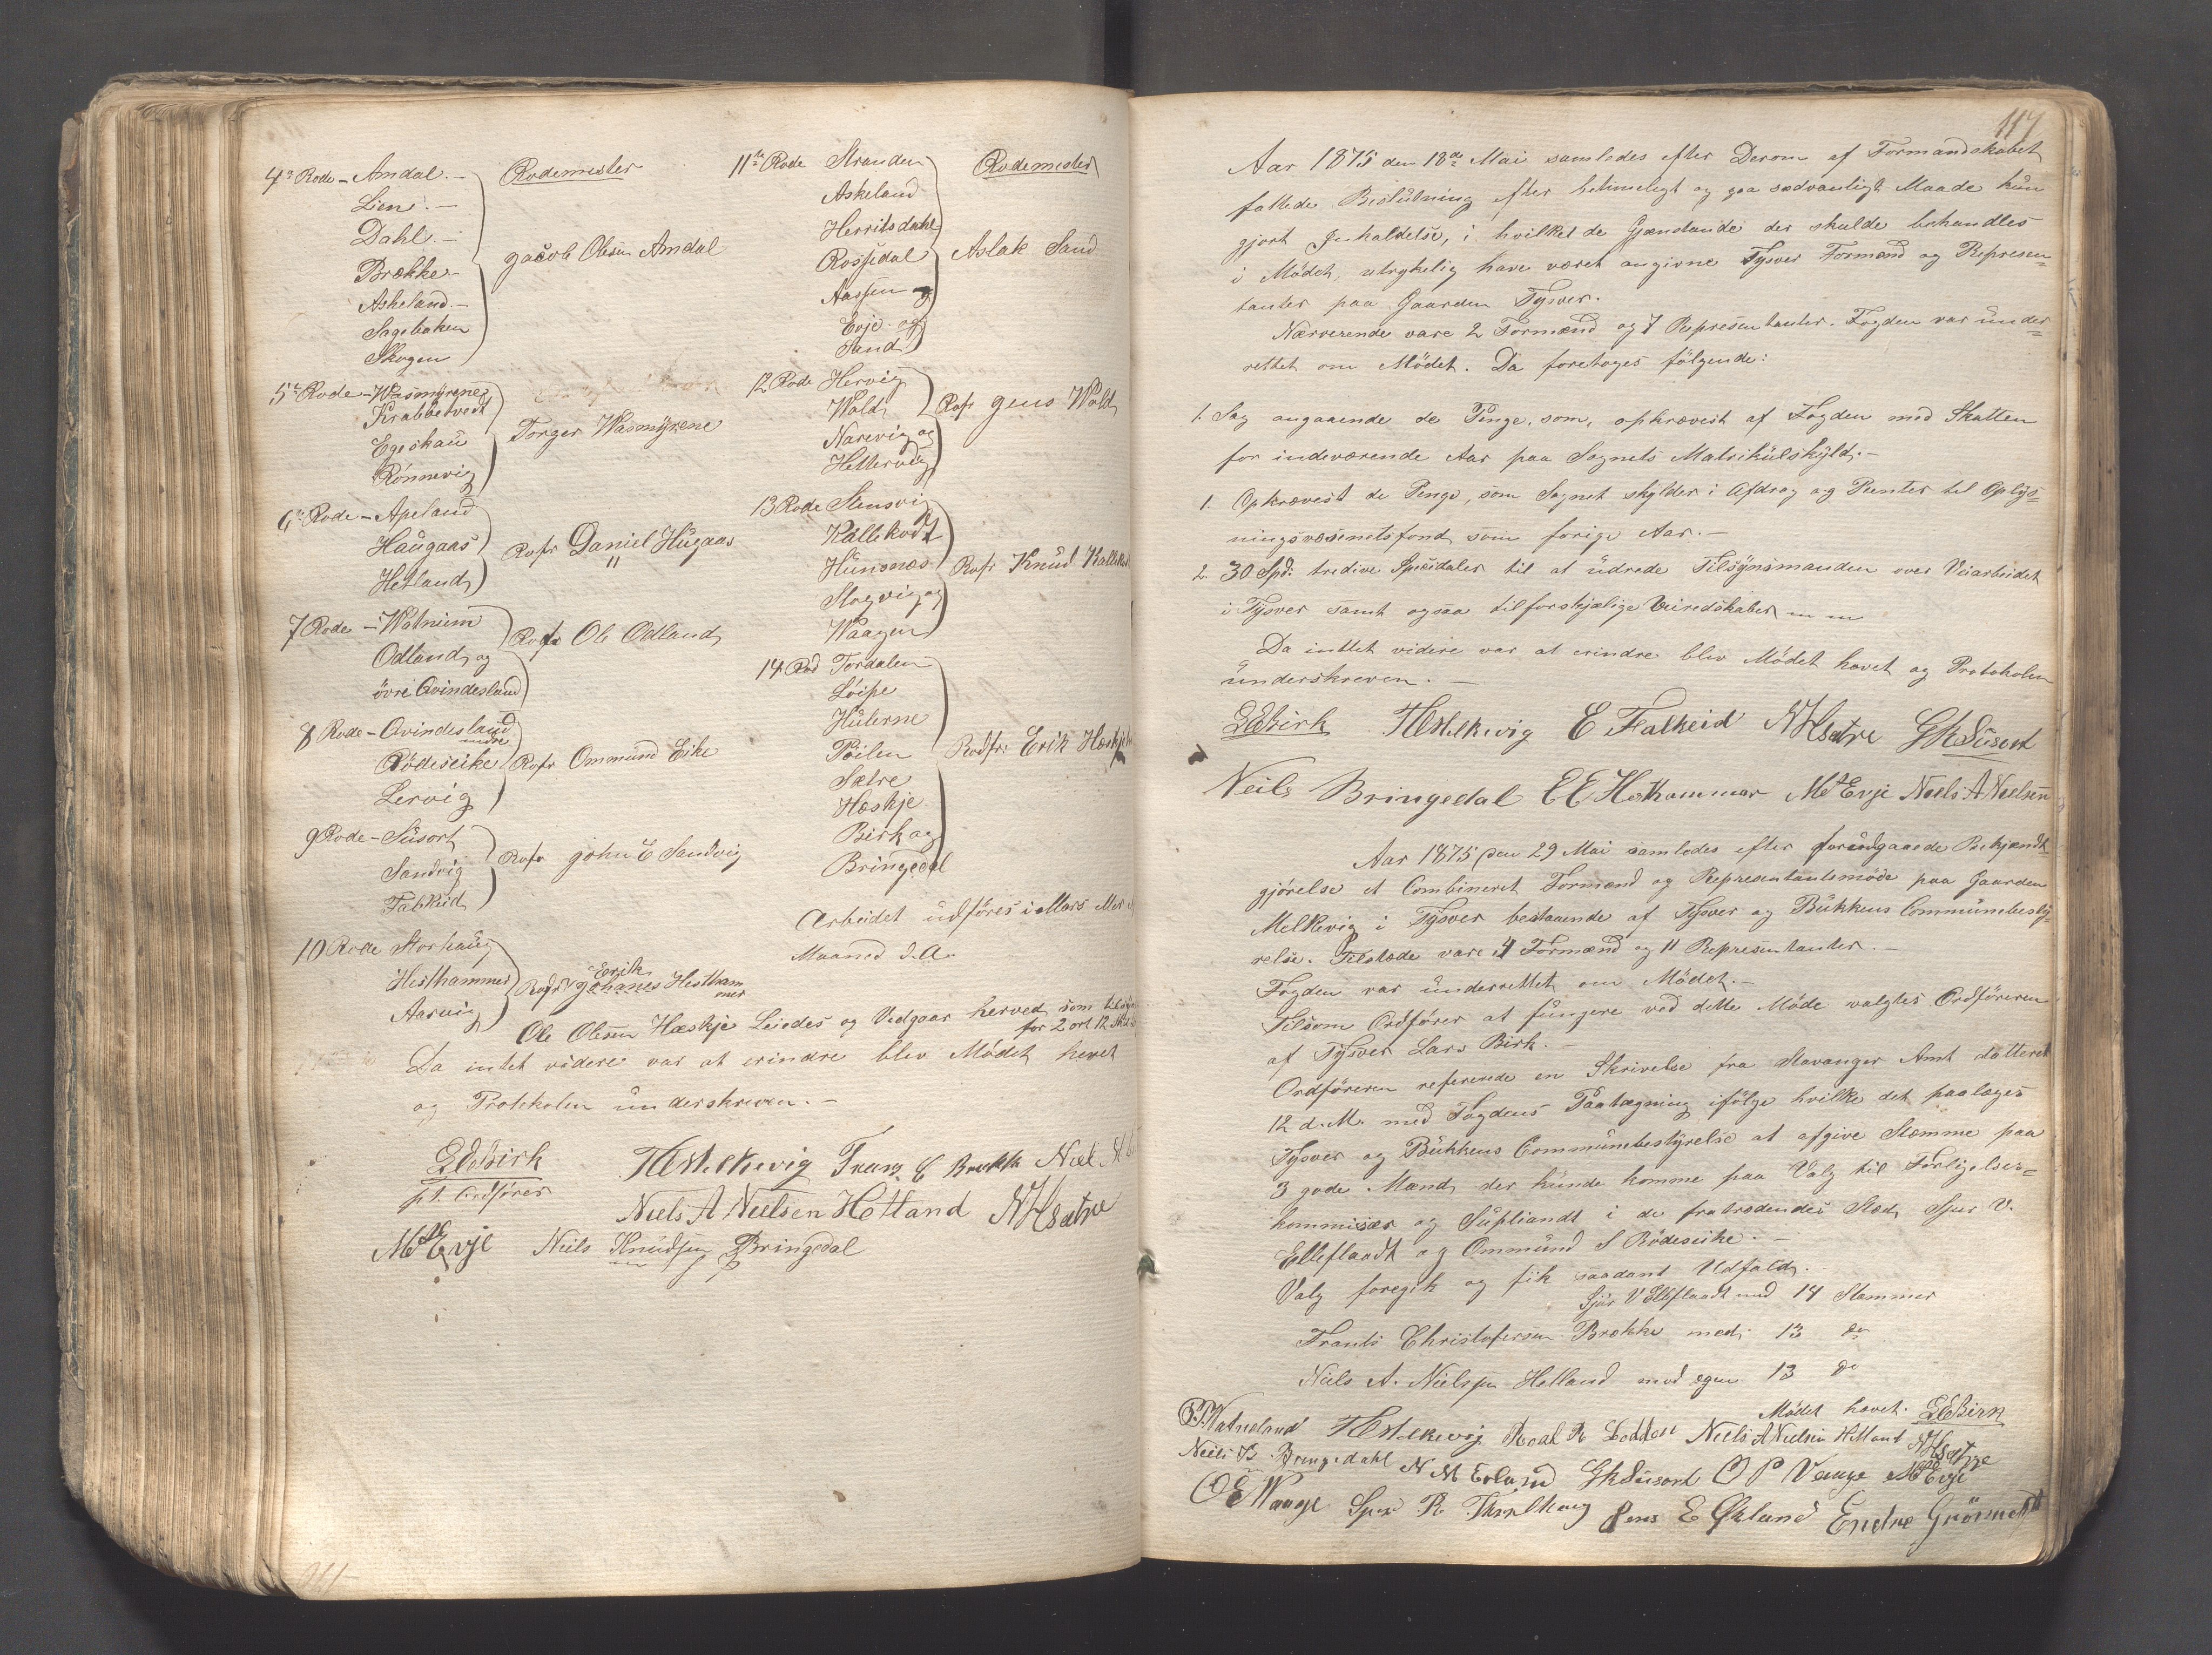 4de Rode - Amdal. -
Rodemester
Liene. -
Dahl. -
Brække -
Jacob Olsen Amdal
Askeland. -
Sagebaken
Skogen
5te Rode - Wasmyrene
Krabbetvedt
Torger Wasmyrene
Egeskau
Rönnevig
6te Rode - Apeland
Haugaas
Rofr Daniel Hugaas
Hetland
7 Rode - Watnum
Odland og
Rofr Ole Odland
övre Qvindesland
8 Rode - Qvindesland
nedre
Rödeseike
Rofr Ommund Eike
Lervig
9 Rode - Susort
Sandvig
Rofr John E Sandvig
Falkeid
10 Rode Storhaug
Hesthammer
Erik
Rofr Johanes Hestham
mer
Aarvig
11te Rode Stranden
Rodemester
Askeland
Herritsdahl
Rossedal
Aslak Sand
Aassen og
Evje og
Sand
12 Rode Hervig
Wold
Rofr Jens Wold
Narevig og
Hettervig
13 Rode Stensvig
Kallekodt
Hunsnæs
Rofr Knud Kallekod
Slogvig og
Waagen
14 Rod Tordalen
Löipe
Hulerne
Töilen
Rodfr: Erik Hæskje
Sætre
Hæskje
Birk og
Bringedal
Arbeidet udföres i Mars
Maaned d. A.
Ole Olsen Hæskje Leiedes og Vedgaar herved som
for 2 ort 12
Da intet videre var at erindre blev Mödet hevet
og Protokolen underskreven. -
L E Birk
pt. Ordförer
H Melkevig Frans C Brække
Niels A Nielsen Hetland N H Sætre
M Evje Neils Knudsen Bringedal
117
Aar 1875 den 18de Mai samledes efter Derom af Formandskabet
fattede Beslutning efter betimeligt og paa sædvanligt Maade kun
gjort Indkaldelse, i hvilket de Gjenstande der skulde behandles
i Mödet, utrykelig have været angivne Tysver Formænd og Represen=
tanter paa Gaarden Tysver.
Nærverende vare 2 Formænd og 7 Representanter. Fogden var under=
rettet om Mödet. Da foretoges fölgende:
1. Sag angaaende de Penge, som, opkrævest af Fogden med Skatten
for indeværende Aar paa Sognets Matrikulskyld. -
1. Opkrævest de Penge, som Sognet skylder i Afdrag og Renter til Oplys=
ningsvæsenetsfond som forige Aar. -
2. 30 Spd: tredive Speidaler til at udrede Tilsynsmanden over Veiarbeidet
i Tysver samt ogsaa tilforskjælige Veiredskaber
Da inttet videre var at erindre blev Mödet hævet og Protokolen
underskreven. -
L E Birk H Melkevig E Falkeid N H Sætre G K Susort
Neils Bringedal E E Hestammer M Evje Neels A Neelsen
Aar 1875 den 29 Mai samledes efter forudgaaede Bekjændt
gjörelse et Combineret Formænd og Representantsmöde paa Gaarden
Melkevig i Tysver bestaaende af Tysver og Bukkens Communebesty=
relse. Tilstæde vare 4 Formænd og 11 Representanter. -
Fogden var underrettet om Mödet. -
Tilsom Ordförer at fungere ved dette Möde valgtes Ordföreren
af Tysver Lars Birk. -
Ordföreren refererede en Skrivelse fra Stavanger Amt datteret
12 d. M. med Fogdens Paatægning ifölge hvilke det paalæges
Tysver og Bukkens Communebestyrelse at afgive Stæmme paa
3 gode Mænd, der kunde komme paa Valg til Forligelses=
kommisær og Supliandt i de fratrædendes Sted Sjur V.
Elleflaadt og Ommund S Rödeseike. -
Valg foregik og fik saadant Udfald. -
Sjur V Elleflaadt med 14 Stæmmer
Frants Christofersen Brække med 13 do
Niels A. Nielssen Hetland med egen 13 do
Mödet hævet. L E Birk
Watneland H Melkevig Roal R Loddesel Niels A Nielsen Hetland N H Sætre
Neils K Bringedahl N M Erland G K Susort O P Vaage M Evje
O E Waage Sjur R Jens E Økland Endre Grönnestadt